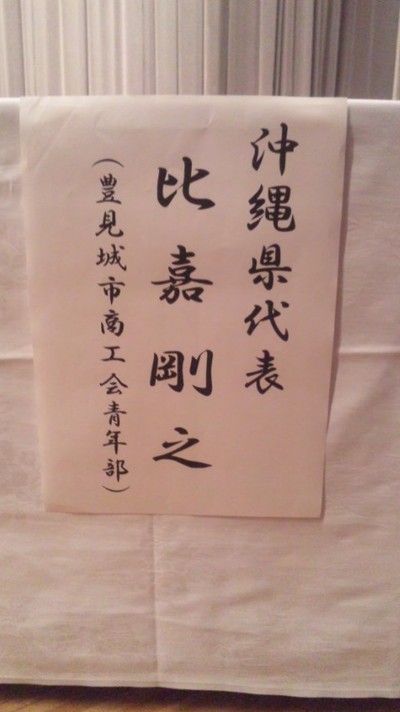 沖縄県代表
比嘉剛之
（豊見城市商工会青年部）